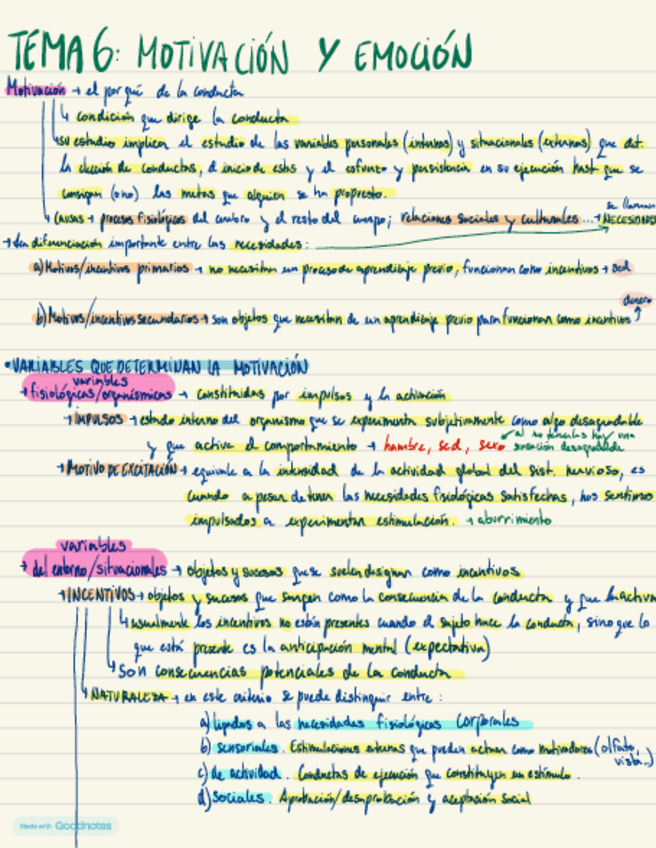 TEMA 6: MOTIVACIÓN Y EMOCIÓN
Motivación → el por qué de la conducta
↳ condición que dirige la conducta
↳ su estudio implica el estudio de las variables personales (internas) y situacionales (externas) que det.
la elección de conductas, el inicio de estas y el esfuerzo y persistencia en su ejecución hasta que se
consigan (o no) las metas que alguien se ha propuesto.
se llaman
↳ Causas → procesos fisiológicos del cerebro y el resto del cuerpo; relaciones sociales y culturales... → NECESIDADES
→ Una diferenciación importante entre las necesidades:
a) Motivos/incentivos primarios → no necesitan un proceso de aprendizaje previo, funcionan como incentivos → sed
dinero
b) Motivos/incentivos secundarios → son objetos que necesitan de un aprendizaje previo para funcionar como incentivos
• VARIABLES QUE DETERMINAN LA MOTIVACIÓN
variables
→ fisiológicas/organísmicas → constituidas por impulsos y la activación
→ IMPULSOS → estado interno del organismo que se experimenta subjetivamente como algo desagradable
al no tenerlas hay una
y que activa el comportamiento → hambre, sed, sexo sensación desagradable
→ MOTIVO DE EXCITACIÓN → equivale a la intensidad de la actividad global del Sist. nervioso, es
cuando a pesar de tener las necesidades fisiológicas satisfechas, nos sentimos
impulsados a experimentar estimulación. → aburrimiento
variables
→ del entorno/situacionales → objetos y sucesos que se suelen designar como incentivos
→ INCENTIVOS → objetos y sucesos que surgen como la consecuencia de la conducta y que la activa
↳ usualmente los incentivos no están presentes cuando el sujeto hace la conducta, sino que lo
que está presente es la anticipación mental (expectativa)
↳ Son consecuencias potenciales de la conducta
↳ NATURALEZA → en este criterio se puede distinguir entre:
a) ligados a las necesidades fisiológicas corporales
b) sensoriales. Estimulaciones externas que pueden actuar como motivadores (olfato,
vista...)
c) de actividad. Conductas de ejecución que constituyen un estímulo.
d) Sociales. Aprobación/desaprobación y aceptación social
Made with Goodnotes